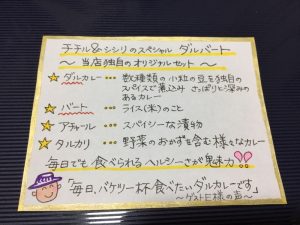 チチル&シシリのスペシャル ダルバート
〜当店独自のオリジナルセット〜
☆ダルカレー…数種類の小粒の豆を独自の
スパイスで煮込み さっぱりと深みの
あるカレー
☆バート…ライス(米)のこと
☆アチャール…スパイシーな漬物
☆タルカリ…野菜のおかずを含む様々なカレー
毎日でも食べられるヘルシーさが魅力!!
「毎日、バケツ一杯食べたいダルカレーです」
〜ゲストE様の声〜